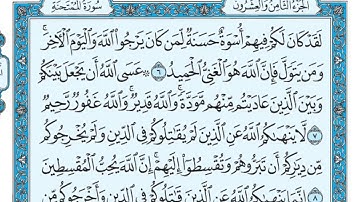 الجزء الثامن والعشرون سورة الممتحنة
لَقَدْ كَانَ لَكُمْ فِيهِمْ أُسْوَةٌ حَسَنَةٌ لِّمَن كَانَ يَرْجُوا۟ ٱللَّهَ وَٱلْيَوْمَ ٱلْءَاخِرَ ۚ
وَمَن يَتَوَلَّ فَإِنَّ ٱللَّهَ هُوَ ٱلْغَنِىُّ ٱلْحَمِيدُ ٦ ۞ عَسَى ٱللَّهُ أَن يَجْعَلَ بَيْنَكُمْ
وَبَيْنَ ٱلَّذِينَ عَادَيْتُم مِّنْهُم مَّوَدَّةً ۚ وَٱللَّهُ قَدِيرٌ ۚ وَٱللَّهُ غَفُورٌ رَّحِيمٌ
٧ لَّا يَنْهَىٰكُمُ ٱللَّهُ عَنِ ٱلَّذِينَ لَمْ يُقَٰتِلُوكُمْ فِى ٱلدِّينِ وَلَمْ يُخْرِجُوكُم
مِّن دِيَٰرِكُمْ أَن تَبَرُّوهُمْ وَتُقْسِطُوٓا۟ إِلَيْهِمْ ۚ إِنَّ ٱللَّهَ يُحِبُّ ٱلْمُقْسِطِينَ
٨ إِنَّمَا يَنْهَىٰكُمُ ٱللَّهُ عَنِ ٱلَّذِينَ قَٰتَلُوكُمْ فِى ٱلدِّينِ وَأَخْرَجُوكُم مِّن